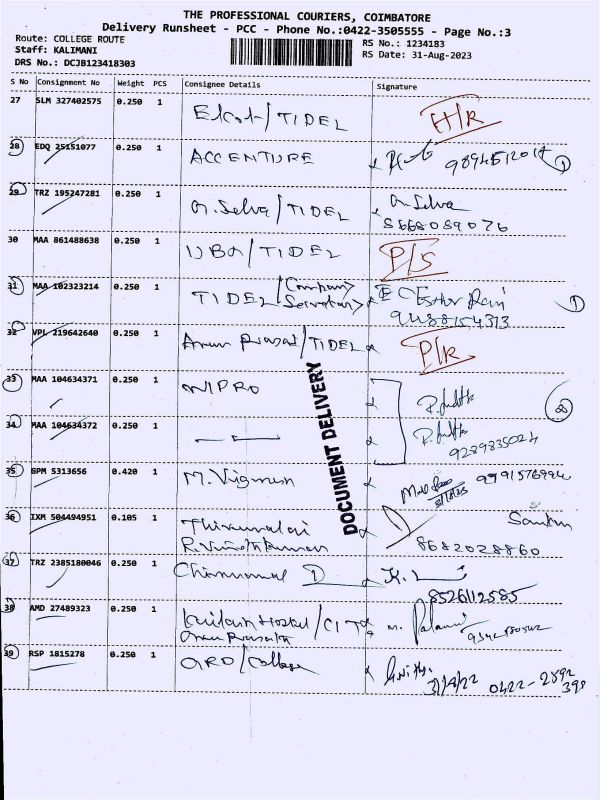 THE PROFESSIONAL COURIERS, COIMBATORE
Delivery Runsheet - PCC - Phone No.:0422-3505555 - Page No.:3
Route: COLLEGE ROUTE
Staff: KALIMANI
DRS No.: DCJB123418303
RS No.: 1234183
RS Date: 31-Aug-2023
S No Consignment No Weight PCS Consignee Details Signature
27 SLM 327402575 0.250 1 Elcot/TIDEL
28 EDQ 25151077 0.250 1 ACCENTURE
29 TRZ 195247281 0.250 1 A. Selva/TIDEL A. Selva
8668089076
30 MAA 861488638 0.250 1 UBA/TIDEL P/S
31 MAA 102323214 0.250 1 TIDEL (Company Secretary)
32 VPL 219642640 0.250 1 Arun Prasad/TIDEL P/R
33 MAA 104634371 0.250 1 WIPRO
34 MAA 104634372 0.250 1
9289835024
35 GPM 5313656 0.420 1 M. Vignesh
36 IXM 504494951 0.105 1 Thirumalai
R. Vinothkumar
8682028860
37 TRZ 2385180046 0.250 1 Chinnammal D
8526112585
38 AMD 27489323 0.250 1 Kailash Hostel/CIT
39 RSP 1815278 0.250 1 GRD/College
DOCUMENT DELIVERY